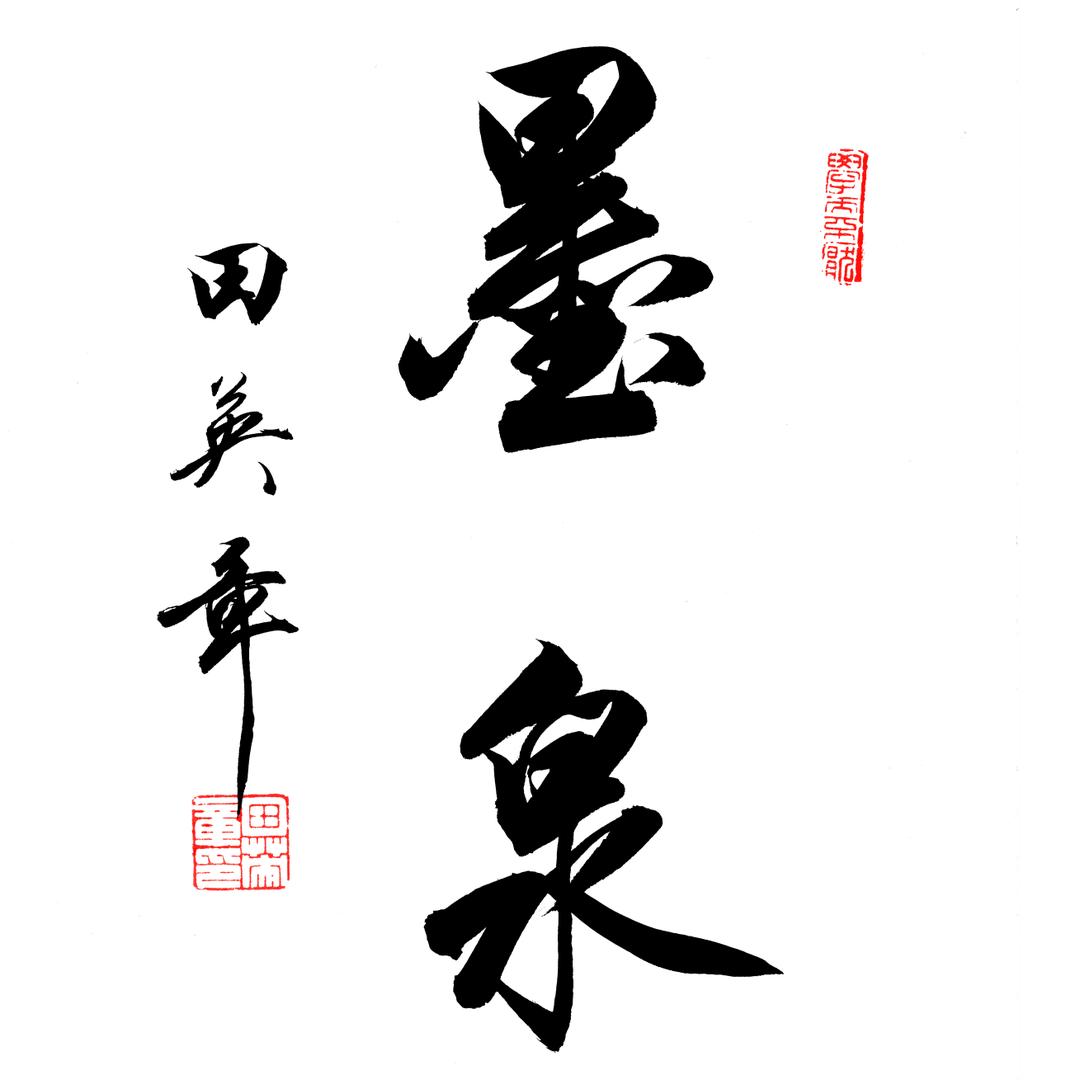 墨泉
田英章
田英章印